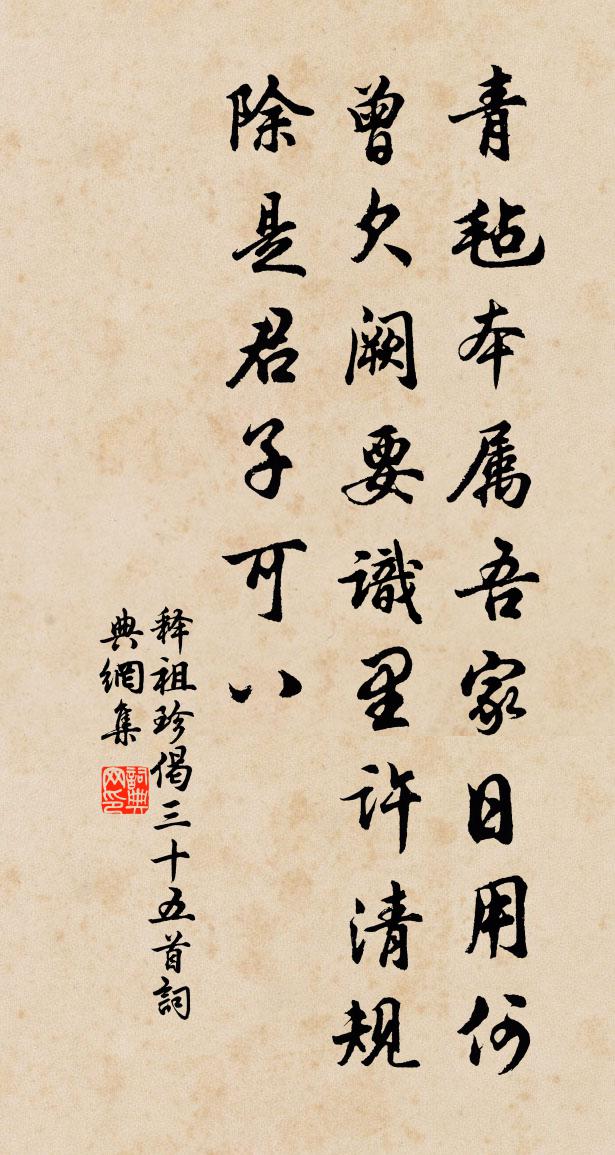 青毡本属吾家日用何
曾欠阙要識里许清規
除是君子可八
释祖珍偈三十五首詞
典網集
詞典网印